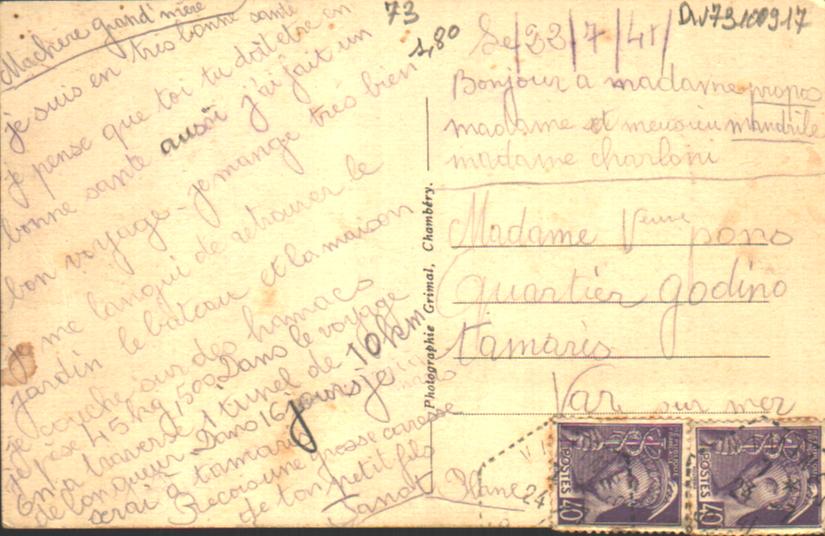 Machère grand'mère
je suis en très bonne santé
je pense que toi tu doit etre en
bonne santé aussi j'ai fait un
bon voyage. je mange très bien
je me langui de retrouver le
jardin le bateau et la maison
je couche sur des hamacs
je pèse 45 kg,500 Dans le voyage
on a traversé 1 tunel de 10 km
de longueur. Dans 16 jours je
serai à tamaris
Recois une grosse caresse
de ton petit fils
73
1,80
Le/23/7/41/
Bonjour a madame propos
madame et meusieu mandrile
madame charloni
Madame Veuve pons
Quartier godino
tamaris
Var sur mer
Photographie Grimal, Chambéry.
POSTES 40
POSTES 40
24
24